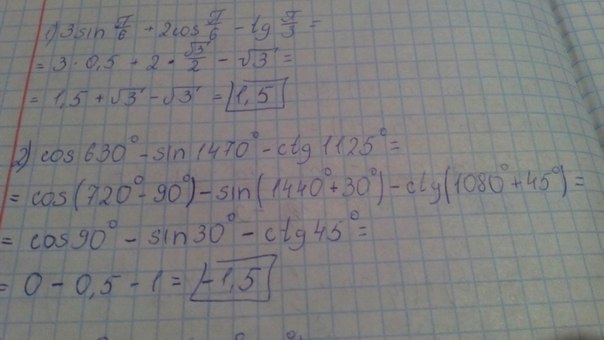 1) 3sin π/6 + 2cos π/6 - tg π/3 =
= 3 · 0,5 + 2 · √3/2 - √3 =
= 1,5 + √3 - √3 = 1,5
2) cos 630° - sin 1470° - ctg 1125° =
= cos(720° - 90°) - sin(1440° + 30°) - ctg(1080° + 45°) =
= cos 90° - sin 30° - ctg 45° =
= 0 - 0,5 - 1 = -1,5